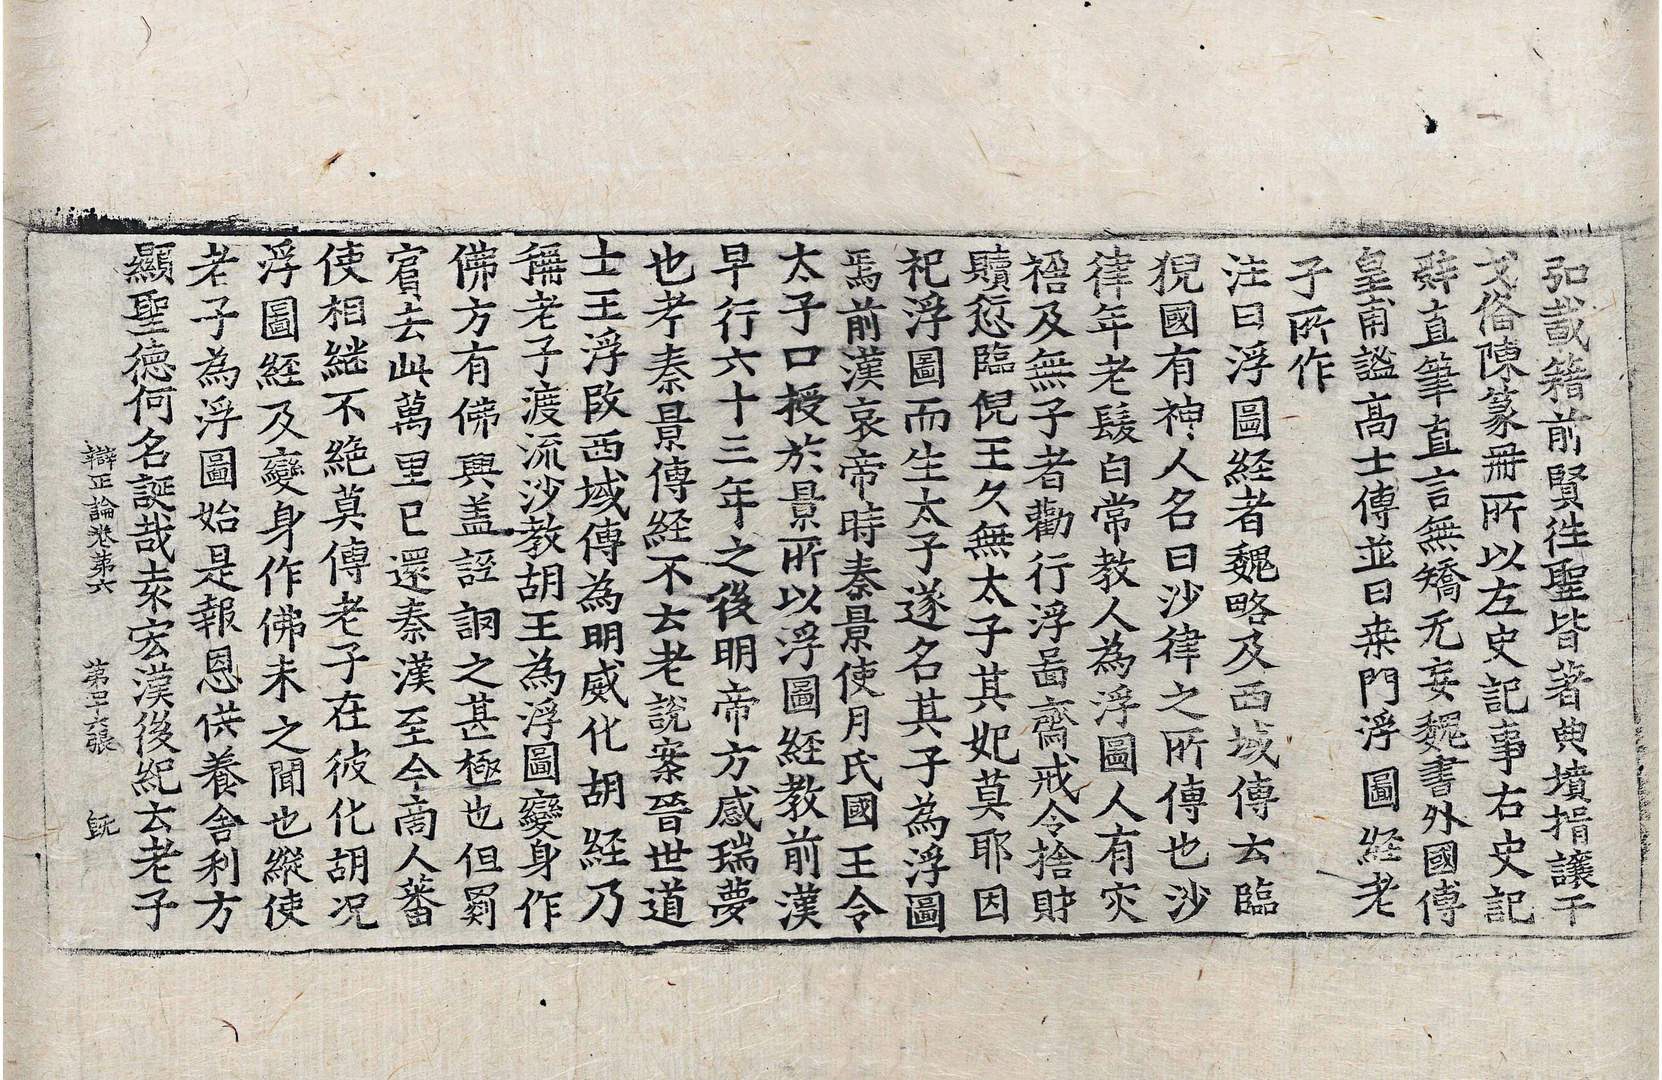 弘載籍前賢往聖皆著典墳揖讓干
戈俗陳篆冊所以左史記事右史記
辤直筆直言無矯无妄魏書外國傳
皇甫謐髙士傳並曰桒門浮圖經老
子所作
注曰浮圖經者魏略及西域傳云臨
猊國有神人名曰沙律之所傳也沙
律年老髮白常教人為浮圖人有灾
禍及無子者勸行浮啚齋戒令捨財
贖愆臨倪王久無太子其妃莫耶因
祀浮圖而生太子遂名其子為浮圖
焉前漢哀帝時秦景使月氏國王令
太子口授於景所以浮圖經教前漢
早行六十三年之後明帝方感瑞夢
也考秦景傳經不云老說案晉世道
士王浮改西域傳為明威化胡經乃
稱老子渡流沙教胡王為浮圖變身作
佛方有佛興盖誣𧥣之甚極也但罽
賔去此萬里已還秦漢至今商人蕃
使相継不絶莫傳老子在彼化胡况
浮圖經及變身作佛未之聞也縱使
老子為浮圖始是報恩供養舍利方
顯聖德何名誕哉袁宏漢後紀云老子
辯正論卷第六 第二十六張 旣